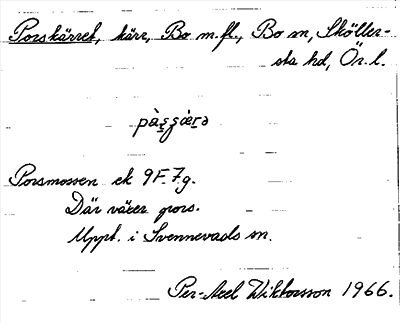 Porskärret, kärr, Bo m.fl., Bo sn, Sköller-
sta hd, Ör. l.
Porsmossen ek 9F 7g.
Där växer pors.
Uppt. i Svennevads sn.
Per-Axel Wiktorsson 1966.